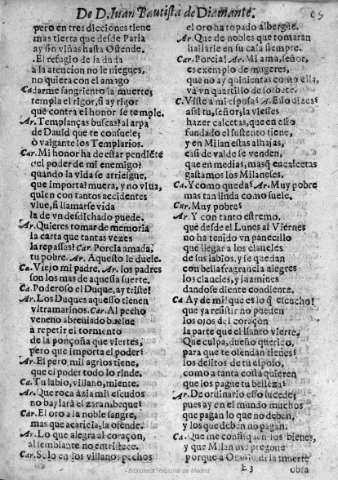 De D. Iuan Bautista de Diamante.
pero en tres dicciones tiene
mas tierra que desde Parla
ay sin viñas hasta Ostende.
El refugio de la duda
a la atencion no le niegues,
no quiera con el amago
Cadarme sangriento la muerte;
templa el rigor, si ay rigor
que contra el honor se temple.
Ar. Templanças buscas? al arpa
de Dauid que te consuele,
ò valgante los Templarios.
Car. Mi honor ha de estar pendiẽte
del poder de mi enemigo?
quando la vida se arriesgue,
que importa? muera, y no viua,
quien con tantos accidentes
viue, si llamarse vida
la de vn desdichado puede.
Ar. Quieres tomar de memoria
la carta que tantas vezes
la repassas? Car. Porcia amada,
tu pobre. Ar. Aquesto le duele.
Ca. Viejo mi padre. Ar. los padres
son los mas de aquessa suerte.
Ca. Poderoso el Duque, ay triste!
Ar. Los Duques aquesso tienen
vltramarinos. Car. Al pecho
veneno abreuiado buelue
a repetir el tormento
de la ponçoña que viertes,
pero que importa el poder?
Ar. El pero, mil agrios tiene,
que el poder todo lo rinde.
Ca. Tu labio, villano, miente.
Ar. Que roca ay si mil escudos
no baylarà el zarambeque?
Car. El oro a la noble sangre,
mas que acaricia, la ofende.
Ar. Lo que alegra al coraçon,
al semblante no entristece.
Ca. Solo en los villanos pechos
el oro ha topado albergue.
Ar. Que de nobles que tomaran
hallarle en su casa siempre.
Car. Porcia? Ar. Mi ama, señor,
es exemplo de mugeres,
que no ay quinientas como ella,
và vn quartillo de
C. Viste a mi esposa? A.
assi tu, señor, la viesses
hazer calcetas, que en esso
fundado el sustento tiene,
y en Milan estas alhajas,
casi de valde se venden,
que en medias, mas q̃ en calcetas
gastamos los Milaneses.
Ca. Y como queda? Ar. Muy pobre
mas tan linda como suele.
Car. Muy pobre?
Ar. Y con tanto estremo,
que desde el Lunes al Viernes
no ha tenido vn panecillo
que llegar a los claueles
de sus labios, y se quedan
con bella fragrancia alegres
los claueles, y jazmines
dandole diente con diente.
Ca. Ay de mi! que es lo q̃ escucho!
que ya resistir no pueden
los ojos del coraçon
la parte que el llanto vierte.
Que culpa, dueño querido,
para que te ofendan tienes?
los delitos de tu esposo,
como a tanta costa quieren
que los pague tu belleza?
Ar. De ordinario esso sucede;
pues ay en el mundo muchos
que pagan lo que no deben,
y los que deben no pagan.
Ca. Que me confisquen los bienes,
y que Milan me pregone
porque a la muerte
E3 obra
Biblioteca Nacional de Madrid